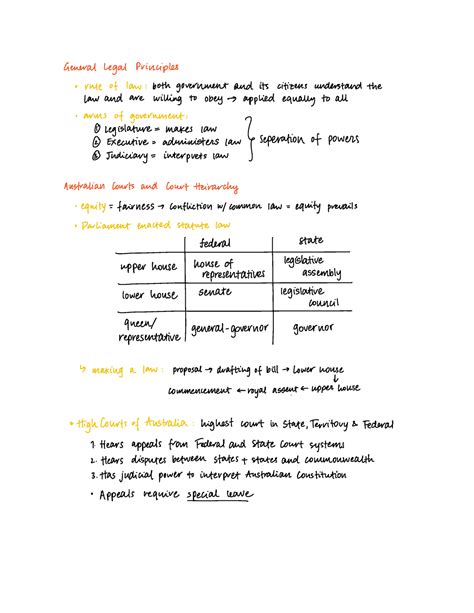 General Legal Principles
• rule of law: both government and its citizens understand the
law and are willing to obey → applied equally to all
• arms of government:
① Legislature = makes law
② Executive = administers law } Seperation of powers
③ Judiciary = interprets law
Australian Courts and Court Heirarchy
• equity = fairness → confliction w/ common law = equity prevails
• Parliament enacted statute law
federal state
upper house house of representatives legislative assembly
lower house senate legislative council
queen/representative general-governor governor
↳ making a law: proposal → drafting of bill → lower house
↓
commencement ← royal assent ← upper house
• High Courts of Australia: highest court in State, Territory & Federal
1. Hears appeals from Federal and State Court systems
2. Hears disputes between states + states and commonwealth
3. Has judicial power to interpret Australian Constitution
• Appeals require special leave